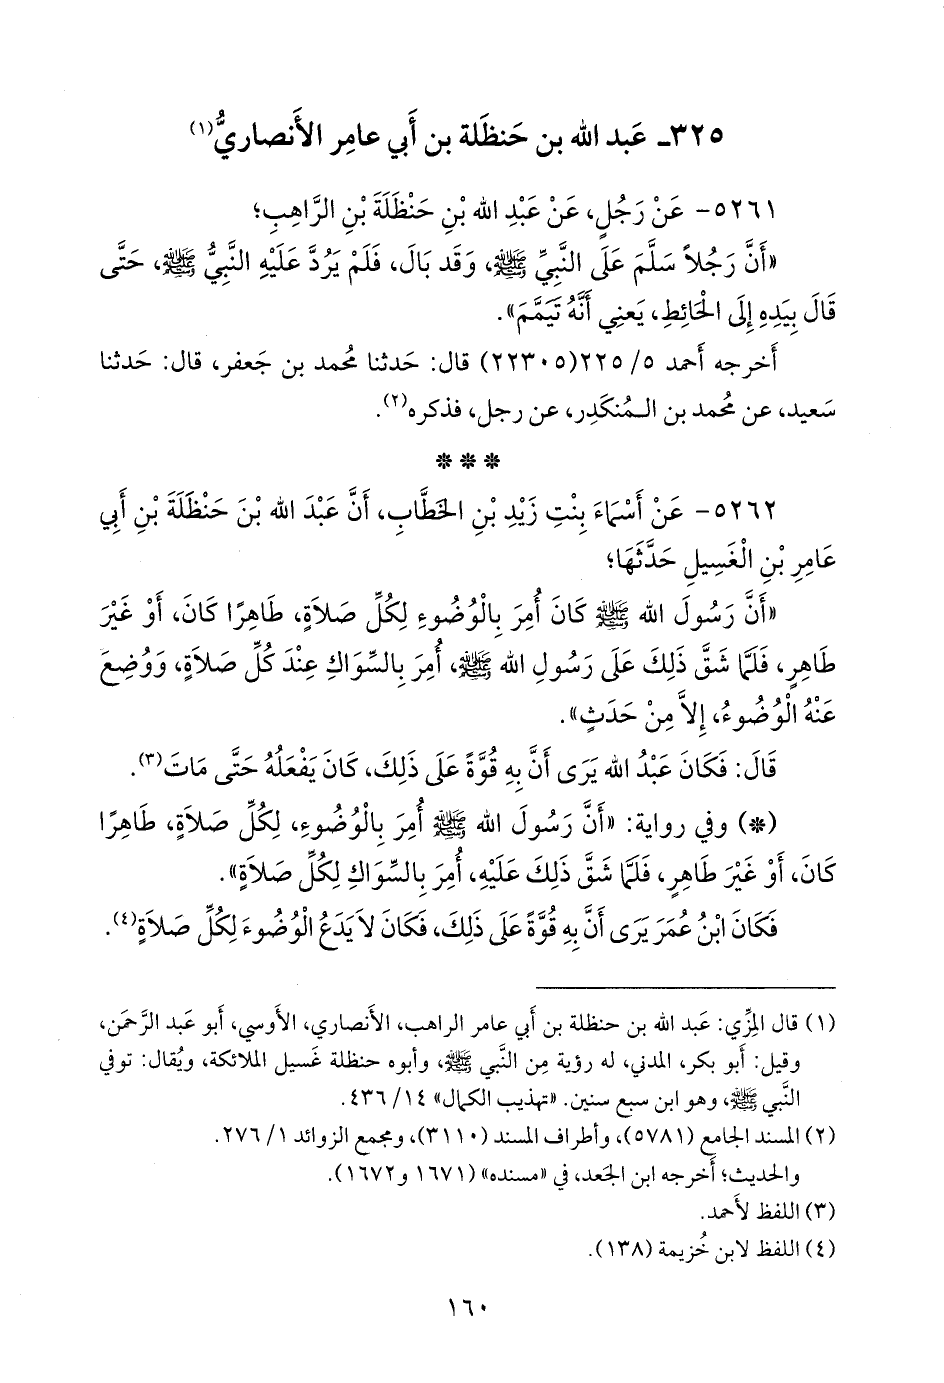 ٣٢٥ـ عَبد الله بن حَنظَلة بن أَبي عامِر الأَنصاريُّ(١)
٥٢٦١- عَنْ رَجُلٍ، عَنْ عَبْدِ الله بْنِ حَنْظَلَةَ بْنِ الرَّاهِبِ؛
«أَنَّ رَجُلاً سَلَّمَ عَلَى النَّبِيِّ ﷺ، وَقَد بَالَ، فَلَمْ يَرُدَّ عَلَيْهِ النَّبِيُّ ﷺ، حَتَّى
قَالَ بِيَدِهِ إِلَى الْحَائِطِ، يَعنِي أَنَّهُ تَيَمَّمَ».
أَخرجه أَحمد ٥/ ٢٢٥(٢٢٣٠٥) قال: حَدثنا مُحمد بن جَعفر، قال: حَدثنا
سَعيد، عن مُحمد بن الـمُنكَدِر، عن رجل، فذكره(٢).
* * *
٥٢٦٢- عَنْ أَسْمَاءَ بِنْتِ زَيْدِ بْنِ الخَطَّابِ، أَنَّ عَبْدَ الله بْنَ حَنْظَلَةَ بْنِ أَبِي
عَامِرِ بْنِ الْغَسِيلِ حَدَّثَهَا؛
«أَنَّ رَسُولَ الله ﷺ كَانَ أُمِرَ بِالْوُضُوءِ لِكُلِّ صَلاَةٍ، طَاهِرًا كَانَ، أَوْ غَيْرَ
طَاهِرٍ، فَلَمَّا شَقَّ ذَلِكَ عَلَى رَسُولِ الله ﷺ، أُمِرَ بِالسِّوَاكِ عِنْدَ كُلِّ صَلاَةٍ، وَوُضِعَ
عَنْهُ الْوُضُوءُ، إِلاَّ مِنْ حَدَثٍ».
قَالَ: فَكَانَ عَبْدُ الله يَرَى أَنَّ بِهِ قُوَّةً عَلَى ذَلِكَ، كَانَ يَفْعَلُهُ حَتَّى مَاتَ(٣).
(*) وفي رواية: «أَنَّ رَسُولَ الله ﷺ أُمِرَ بِالْوُضُوءِ، لِكُلِّ صَلاَةٍ، طَاهِرًا
كَانَ، أَوْ غَيْرَ طَاهِرٍ، فَلَمَّا شَقَّ ذَلِكَ عَلَيْهِ، أُمِرَ بِالسِّوَاكِ لِكُلِّ صَلاَةٍ».
فَكَانَ ابْنُ عُمَرَ يَرَى أَنَّ بِهِ قُوَّةً عَلَى ذَلِكَ، فَكَانَ لاَ يَدَعُ الْوُضُوءَ لِكُلِّ صَلاَةٍ(٤).
(١) قال المِزِّي: عَبد الله بن حنظلة بن أَبي عامر الراهب، الأَنصاري، الأَوسي، أَبو عَبد الرَّحمَن،
وقيل: أَبو بكر، المدني، له رؤية مِن النَّبي ﷺ، وأَبوه حنظلة غَسيل الملائكة، ويُقال: توفي
النَّبي ﷺ، وهو ابن سبع سنين. «تهذيب الكمال» ١٤/ ٤٣٦.
(٢) المسند الجامع (٥٧٨١)، وأطراف المسند (٣١١٠)، ومجمع الزوائد ١/ ٢٧٦.
والحديث؛ أَخرجه ابن الجَعد، في «مسنده» (١٦٧١ و١٦٧٢).
(٣) اللفظ لأَحمد.
(٤) اللفظ لابن خُزيمة (١٣٨).
١٦٠